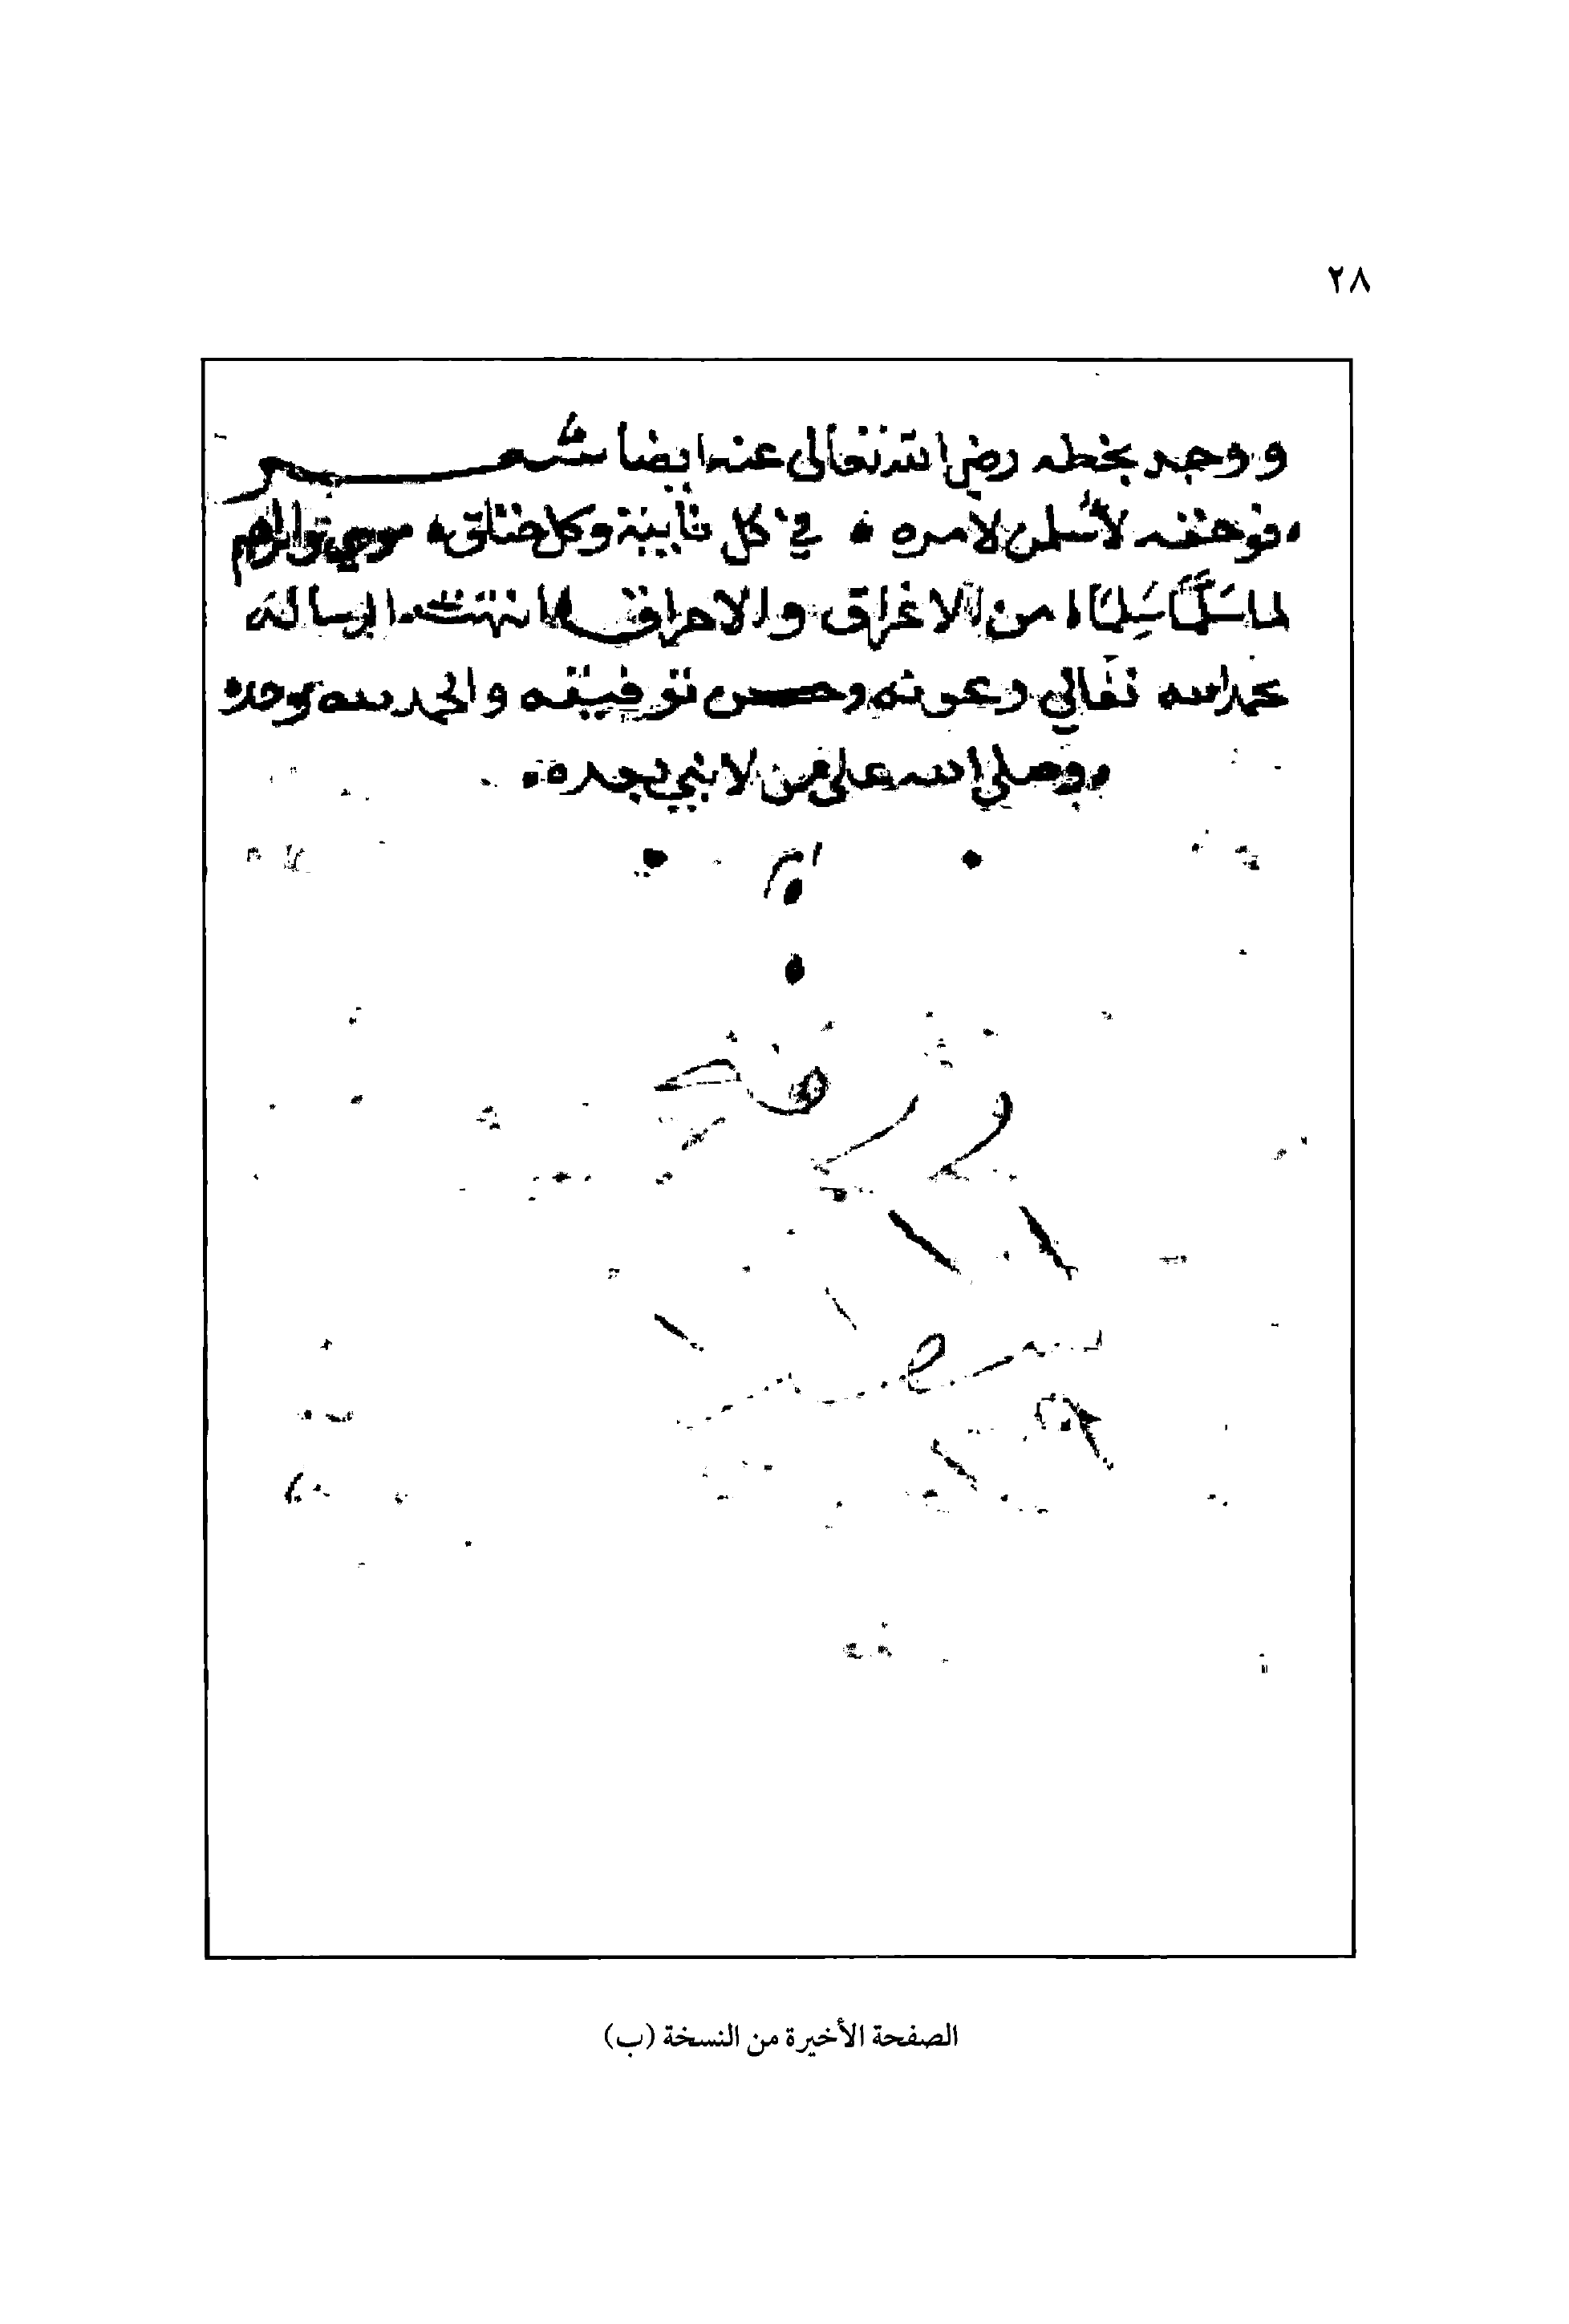 ٢٨
ووجد بخطه رضي الله تعالى عنه ايضا شعر
فوحقه لأسلمن لامره في كل نايبة وكل خناق موسى وابراهيم
لما سلما سلما من الاغراق والاحراق انتهت الرسالة
بحمد الله تعالي وعونه وحسن توفيقه والحمد لله وحده
وصلي الله على من لا نبي بعده
الصفحة الأخيرة من النسخة (ب)